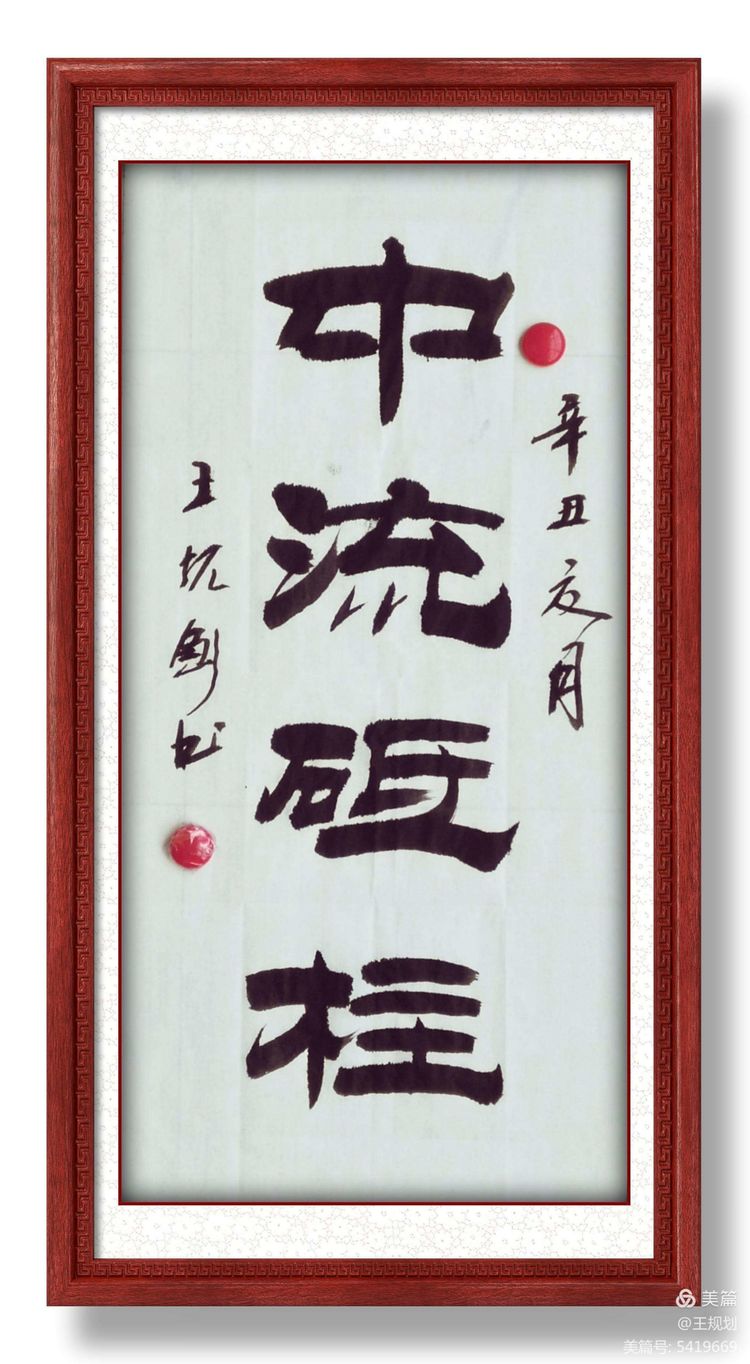 辛丑夏月
中流砥柱
王抗书
美篇
@王规划
美篇号: 5419669